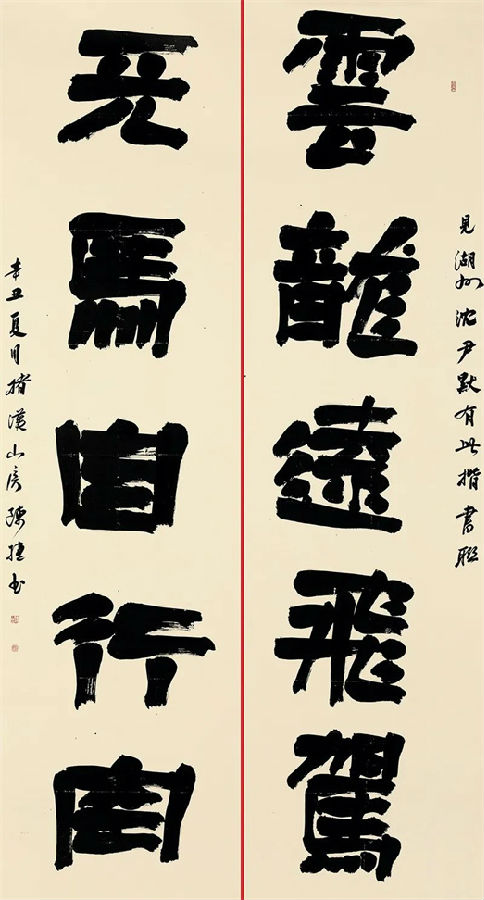 見湖州沈尹默有此楷書聯
雲龍遠飛駕
天馬自行空
辛丑夏月漢山房張繼書